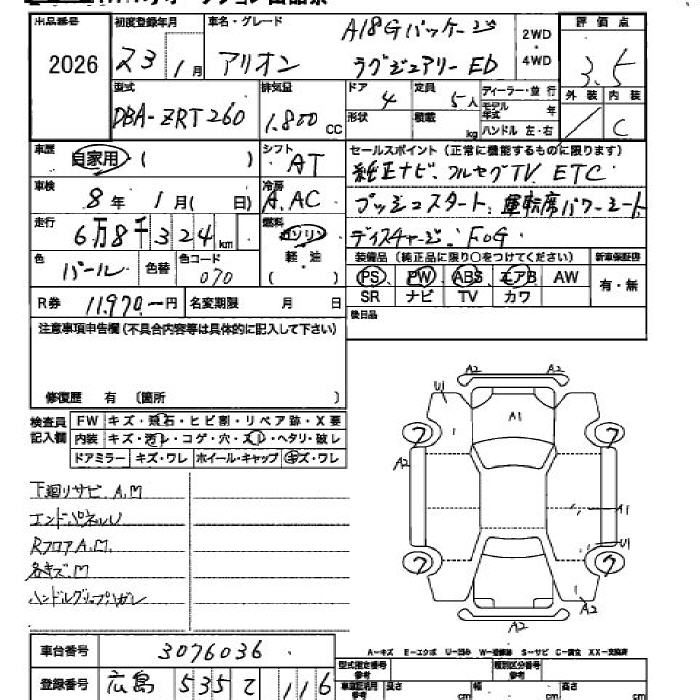 出品番号 初度登録年月 車名・グレード A18Gパッケージ 2WD・4WD 評価点
2026 23 1月 アリオン ラグジュアリーEd 3.5
型式 排気量 ドア 定員 ディーラー・並行 外装 内装
DBA-ZRT260 1.800 CC 4 5人 モデル年式 年
形状 積載 kg ハンドル 左・右 / C
車歴 自家用 ( ) シフト AT セールスポイント(正常に機能するものに限ります)
純正ナビ.フルセグTV ETC
車検 8年 1月( 日) 冷房 A.AC プッシュスタート.運転席パワーシート
走行 6万8千324km 燃料 ガソリン 軽油 ( ) ディスチャージ.FOG
色 パール 色替 色コード 070
装備品(純正品に限り○をつけてください) 新車保証書
PS PW ABS エアB AW 有・無
SR ナビ TV カワ
R券 11,970.-円 名変期限 月 日
後日品
注意事項申告欄(不具合内容等は具体的に記入して下さい)
修復歴 有 〔箇所 〕
検査員記入欄 FW キズ・飛石・ヒビ割・リペア跡・X要
内装 キズ・汚レ・コゲ・穴・スレ・ヘタリ・破レ
ドアミラー キズ・ワレ ホイール・キャップ キズ・ワレ
下廻リサビ A.M
エンドパネルU
RフロアA.M.
各キズ.M
ハンドルグリップハガレ
A2 A2
U1 A1
1
7 7
A2
1 A1
U1
7 7
1
A2
A2 A2
車台番号 3076036
A-キズ E-エクボ U-凹み W-補修跡 S-サビ C-腐食 XX-交換済
登録番号 広島 535 て 116
型式指定番号 参考 類別区分番号 参考
車庫証明用 参考 長さ cm 幅 cm 高さ cm